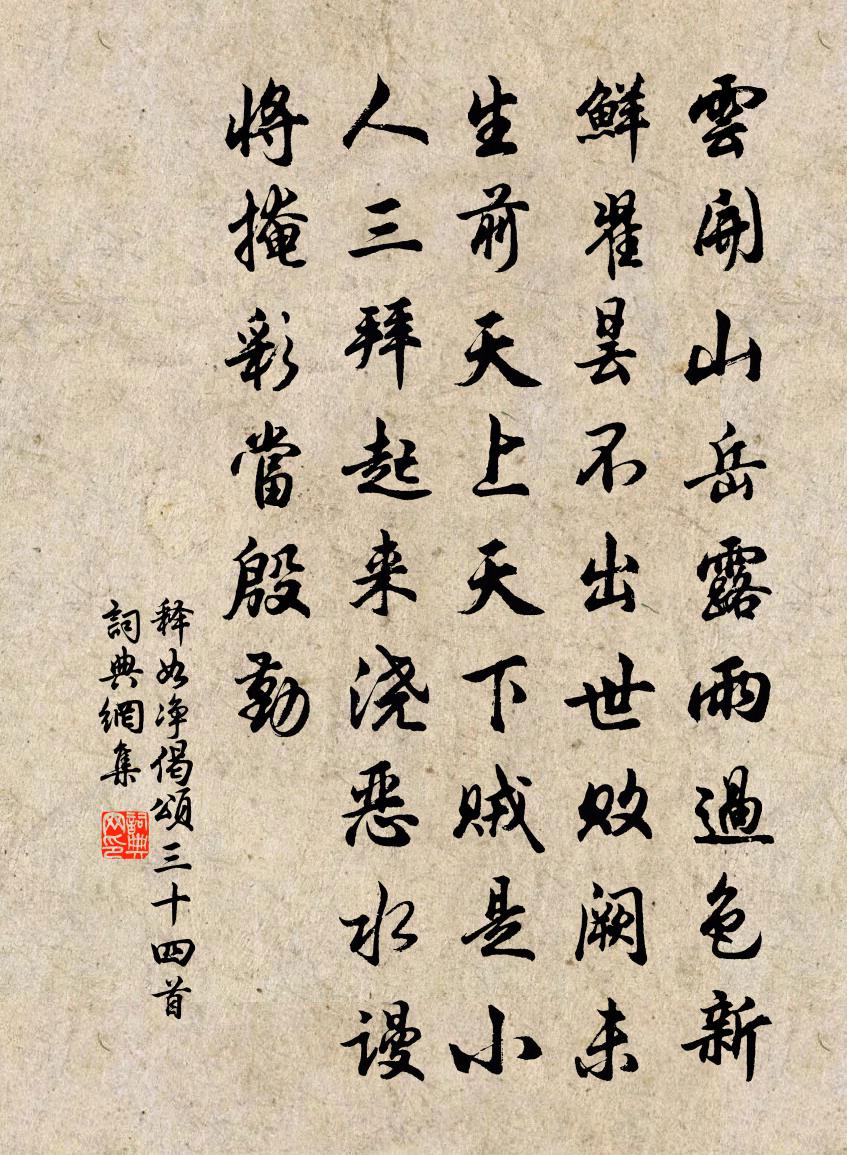 雲開山岳露雨過色新
鮮瞿曇不出世敗阙未
生前天上天下賊是小
人三拜起来浇惡水谩
將掩彩當殷勤
释如净偈頌三十四首
詞典網集
詞典网印